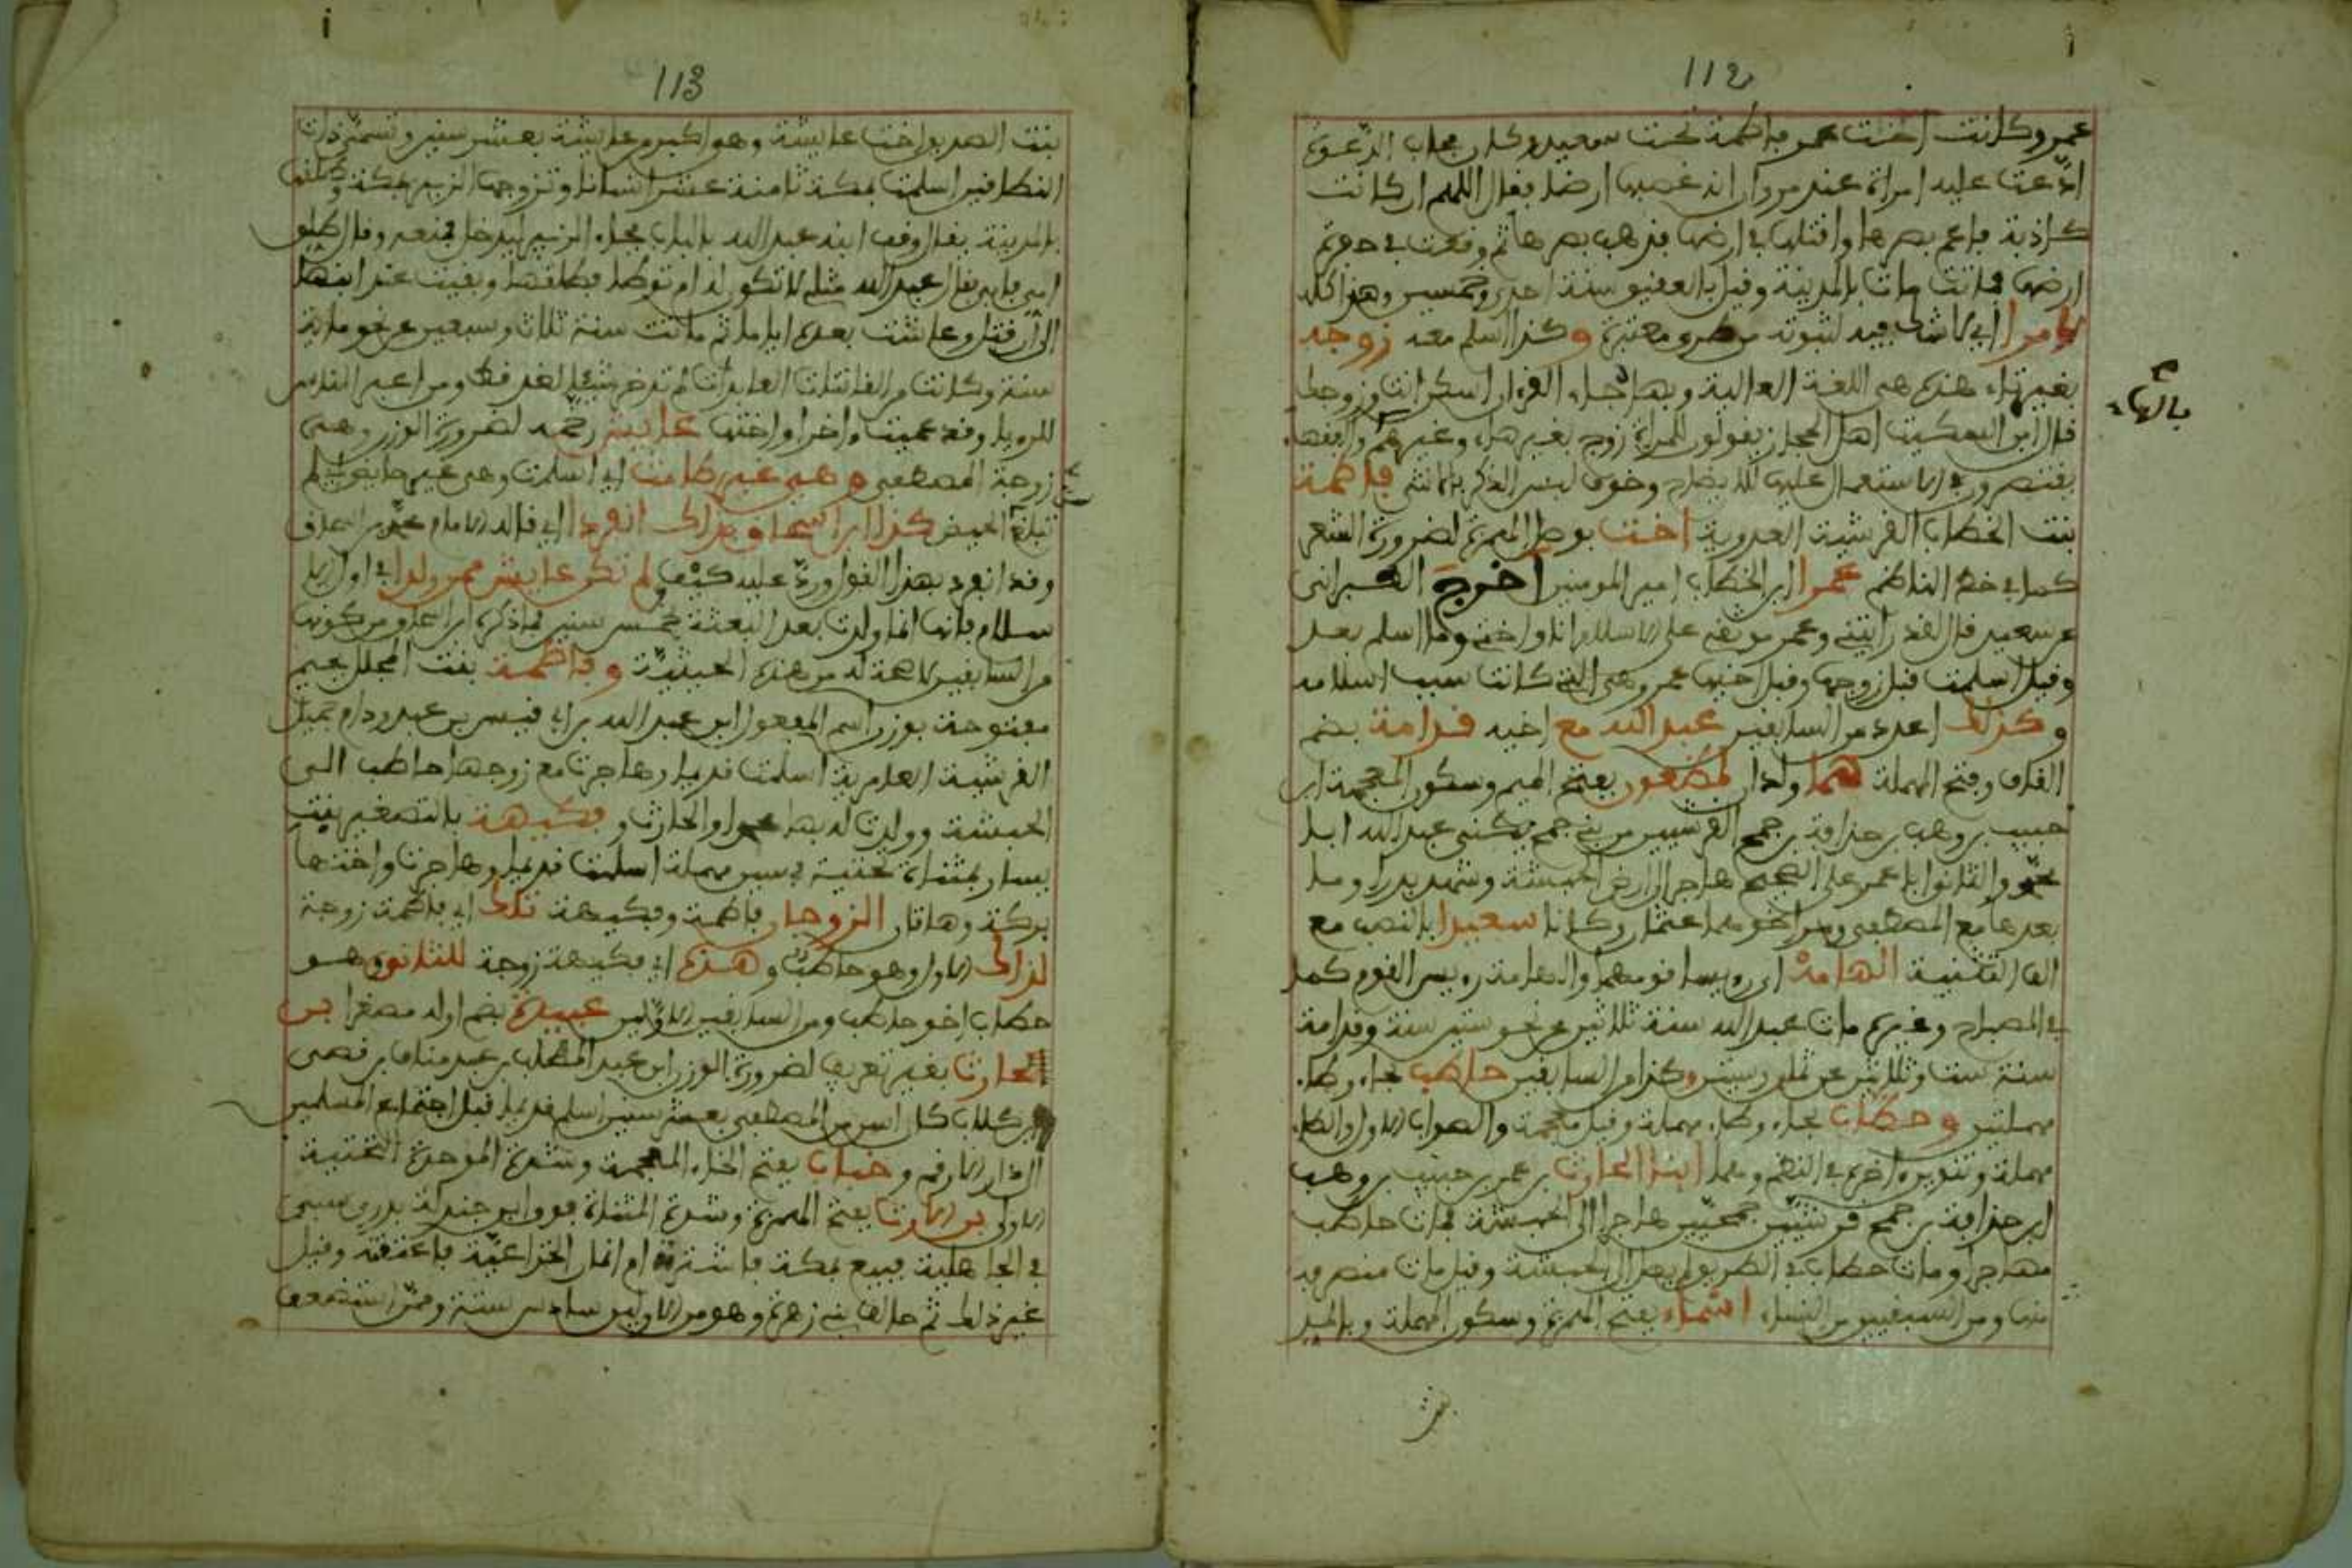 112
عمر وكانت أخت عمر فاطمة تحت سعيد وكان مجاب الدعوة
ادّعت عليه امراة عند مروان انه غصبها ارضا فقال اللهم ان كانت
كاذبة فاعم بصرها واقتلها في ارضها فذهب بصرها ثم وقعت في حفرة
ارضها فماتت مات بالمدينة وقيل بالعقيق سنة احدى وخمسين وهذا كله
لا مرا اي لا شك فيه لثبوته من طرق معتبرة وكذا اسلم معه زوجه
بغير تاء هذه هي اللغة العالية وبها جاء القرءان اسكن انت وزوجك
بالهاء
قال ابن السكيت اهل الحجاز يقولون للمراة زوج بغير هاء وغيرهم والفقهاء
يقتصرون في الاستعمال عليها للايضاح وخوف لبس الذكر بالانثى فاطمة
بنت الخطاب القرشية العدوية اخت بوصل الهمزة لضرورة الشعر
كما في خط الناظم عمرا ابن الخطاب امير المومنين اخرج الطبراني
عن سعيد قال لقد رايتني وعمر موثقي على الاسلام انا واخته وما اسلم بعد
وقيل اسلمت قبل زوجها وقيل اخيها عمر وهي التي كانت سبب اسلامه
وكذلك اعدد من السابقين عبد الله مع اخيه قدامة بضم
القاف وفتح المهملة هما ولدان لمضعون بفتح الميم وسكون المعجمة ابن
حبيب بن وهب بن حذافة بن جمح القرشيين من بني جمح يكنى عبد الله ابا
محمد والثاني ابا عمر على الصحيح هاجر الى ارض الحبشة وشهد بدرا وما
بعدها مع المصطفى وهما اخو عثمان وكانا سعيدا بالنصب مع
الف التثنية الهامة اي رويسا قومهما والهامة رويس القوم كما
في المصباح وغيره مات عبد الله سنة ثلاثين عن نحو ستين سنة وقدامة
سنة ست وثلاثين عن ثمان وستين وكذا من السابقين حاطب بحاء وطاء
مهملتين وحطاب بحاء وطاء مهملة وقيل معجمة والصواب الاول والطاء
مهملة وتنوين اخره في النظم وهما ابنا الحارث بن عمر بن حبيب بن وهب
ابن حذافة بن جمح قرشيّين جمحيّين هاجرا الى الحبشة فمات حاطب
مهاجرا ومات حطاب في الطريق لم يصل الى الحبشة وقيل مات منصرفه
منها ومن السابقين من النساء اسماء بفتح الهمزة وسكون المهملة وبالمد
بنت
113
بنت الصديق اخت عايشة وهي اكبر من عايشة بعشر سنين وتسمى ذات
النطاقين اسلمت بمكة ثامنة عشر انسانا وتزوجها الزبير بمكة وطلقها
بالمدينة يقال وقف ابنه عبد الله بالباب فجاء الزبير ليدخل فمنعه وقال طلق
امي فابى فقال عبد الله مثلي لا تكون له ام توطا فطلقها وبقيت عند ابنها
الى ان قتل وعاشت بعده اياما ثم ماتت سنة ثلاث وسبعين عن نحو ماية
سنة وكانت من القانتات العابدات لم تدخر شيئا لغد قط ومن اعبر الناس
للرويا وقد عميت واخرا واختها عايش رخمه لضرورة الوزن وهي
زوجة المصطفى وهي غير طامث اي اسلمت وهي غير حايض لم
تبلغ الحيض كذا ابن اسحاق بذلك انفردا اي قاله الامام محمد بن اسحاق
وقد انفرد بهذا القول وردّ عليه كيف ولم تكن عايش ممن ولدا في اول الا
سلام فانها انما ولدت بعد البعثة بخمس سنين فما ذكره ابن اسحاق من كونها
من السابقين لا صحة له من هذه الحيثية وفاطمة بنت المجلل بجيم
مفتوحة بوزن اسم المفعول ابن عبد الله بن ابي قيس بن عبد ود ام جميل
القرشية العامرية اسلمت قديما وهاجرت مع زوجها حاطب الى
الحبشة وولدت له بها محمدا والحارث وفكيهة بالتصغير بنت
يسار بمثناة تحتية فسين مهملة اسلمت قديما وهاجرت واختها
بركة وهاتان الزوجان فاطمة وفكيهة تلك اي فاطمة زوجة
لذاك الاول وهو حاطب وهذه اي فكيهة زوجة للثاني وهو
حطاب اخو حاطب ومن السابقين الاوّلين عبيدة بضم اوله مصغرا بن
الحارث بغير تعريف لضرورة الوزن ابن عبد المطلب بن عبد مناف بن قصى
بن كلاب كان اسن من المصطفى بعشر سنين اسلم قديما قبل اجتماع المسلمين
الدار الارقم وخباب بفتح الخاء المعجمة وشدة الموحدة التحتية
الاولى بن الارت بفتح الهمزة وشدة المثناة فوق ابن جندلة بدري سبي
في الجاهلية فبيع بمكة فاشترته ام انمار الخزاعيّة فاعتقته وقيل
غير ذلك ثم حالف بني زهرة وهو من الاولين سادس ستة وممن استضعف